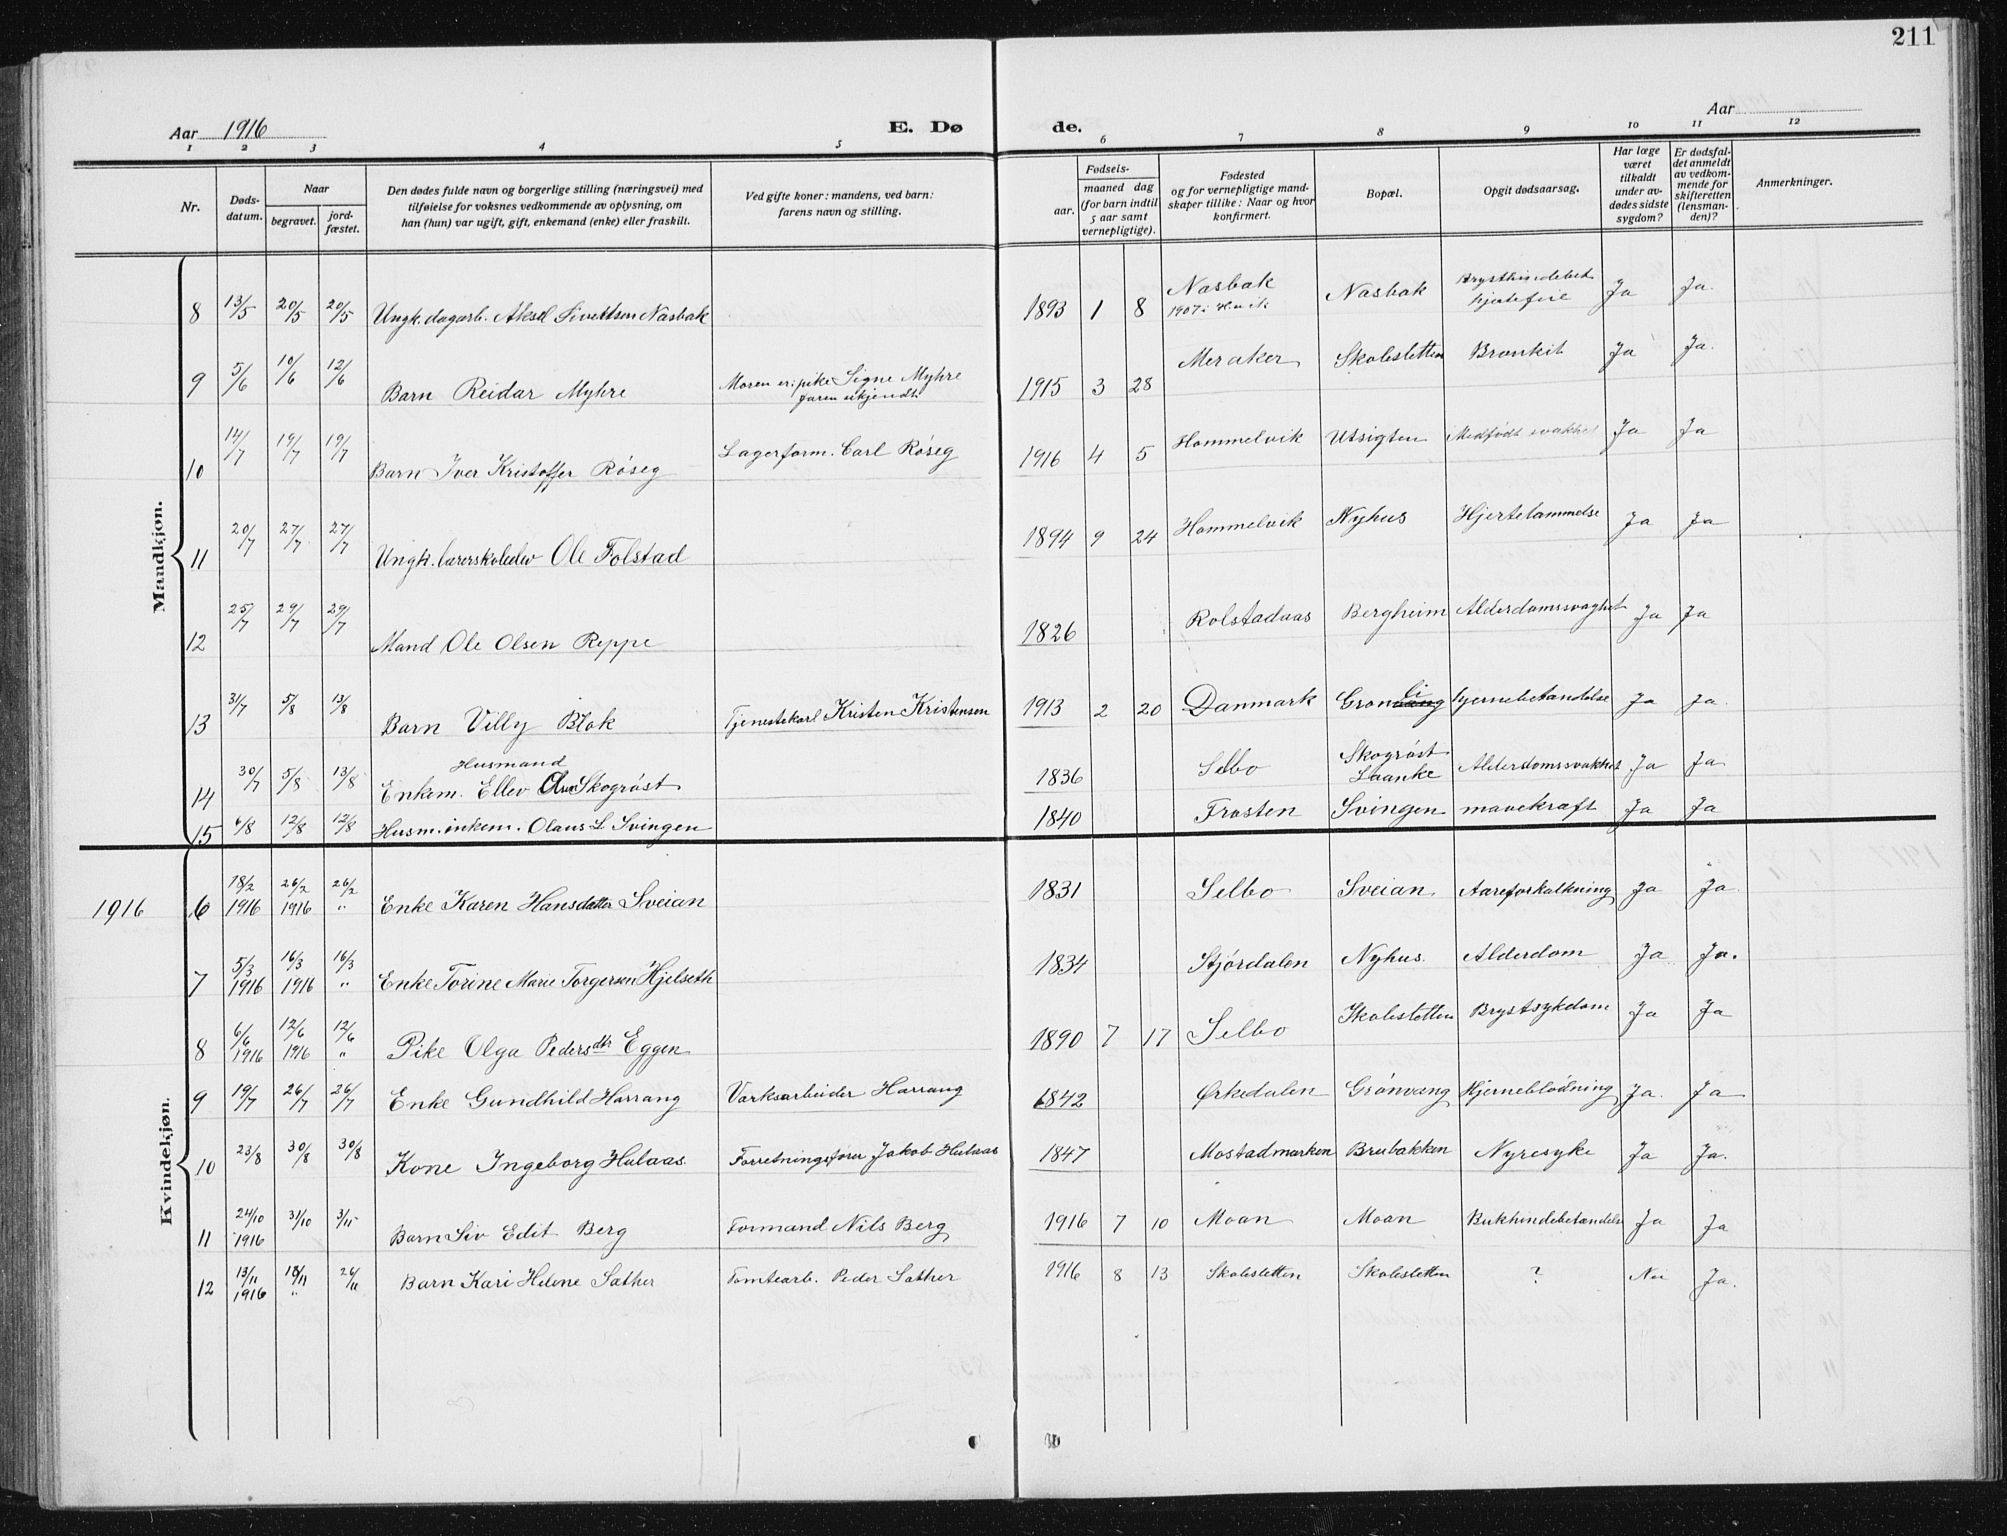 211
Aar 1916
E. Dø de.
Aar
1 2 3 4 5 6 7 8 9 10 11 12
Nr.
Døds-
datum.
Naar
begravet.
jord-
fæstet.
Den dødes fulde navn og borgerlige stilling (næringsvei) med
tilføielse for voksnes vedkommende av oplysning, om
han (hun) var ugift, gift, enkemand (enke) eller fraskilt.
Ved gifte koner: mandens, ved barn:
farens navn og stilling.
Fødsels-
aar.
maaned dag
(for barn indtil
5 aar samt
vernepligtige).
Fødested
og for vernepligtige mand-
skaper tillike: Naar og hvor
konfirmert.
Bopæl.
Opgit dødsaarsag.
Har læge
været
tilkaldt
under av-
dødes sidste
sygdom?
Er dødsfal-
det anmeldt
av vedkom-
mende for
skifteretten
(lensman-
den)?
Anmerkninger.
Mandkjøn.
8 13/5 20/5 20/5 Ungk. dagarb. Aksel Sivertsen Nasbak 1893 1 8 Nasbak Nasbak Brysthindebet. Ja Ja.
1907 i Hvik hjertefeil
9 5/6 10/6 12/6 Barn Reidar Myhre Moren er: pike Signe Myhre 1915 3 28 Meraker Skolesletten Bronkit Ja Ja.
faren ukjendt.
10 14/7 19/7 19/7 Barn Iver Kristoffer Røseg Lagerform. Carl Røseg 1916 4 5 Hommelvik Utsigten Medfødt svakhet Ja Ja
11 20/7 27/7 27/7 Ungk. lærerskoleelev Ole Folstad 1894 9 24 Hommelvik Nyhus Hjertelammelse Ja Ja
12 25/7 29/7 29/7 Mand Ole Olsen Reppe 1826 Rolstadaas Bergheim Alderdomssvaghet Ja Ja
13 31/7 5/8 13/8 Barn Villy Blok Tjenestekarl Kristen Kristensen 1913 2 20 Danmark Gronli hjernebetændelse Ja Ja.
Husmand
14 30/7 5/8 13/8 Enkem. Ellev Olsen Skogrøst 1836 Selbo Skogrøst Alderdomssvakhet Ja Ja
Laanke
15 6/8 12/8 12/8 Husm. enkem. Olaus L Svingen 1840 Frosten Svingen mavekræft Ja Ja
Kvindekjøn.
1916 6 18/2 1916 26/2 1916 26/2 " Enke Karen Hansdatter Sveian 1831 Selbo Sveian Aareforkalkning Ja Ja
7 5/3 1916 16/3 1916 16/3 " Enke Torine Marie Torgersen Hjelseth 1834 Stjørdalen Nyhus. Alderdom Ja Ja.
8 6/6 1916 12/6 1916 12/6 " Pike Olga Pedersdtr Eggen 1890 7 17 Selbo Skolesletten Brystsykdom Ja Ja
9 19/7 26/7 26/7 Enke Gundhild Harrang Verksarbeider Harrang 1842 Ørkedalen Grønvang Hjerneblødning Ja. Ja
10 23/8 30/8 30/8 Kone Ingeborg Hulaas. Forretningsfører Jakob Hulaas 1847 Mostadmarken Brubakken Nyresyke Ja Ja.
11 24/10 1916 31/10 3/11 Barn Siv Edit Berg Formand Nils Berg 1916 7 10 Moan Moan Bukhindebetændelse Ja Ja
12 13/11 1916 18/11 " 26/11 Barn Kari Helene Sæther Tomtearb. Peder Sæther 1916 8 13 Skolesletten Skolesletten ? Nei Ja.